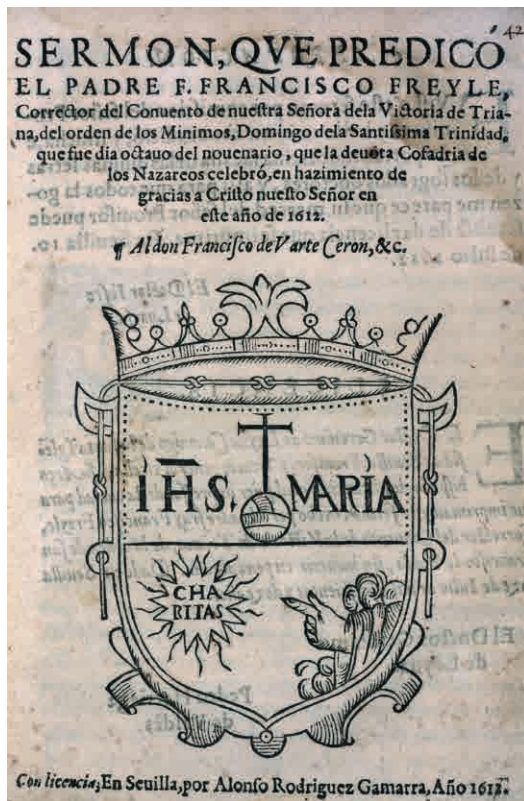 42
SERMON, QVE PREDICÓ
EL PADRE F. FRANCISCO FREYLE,
Corrector del Conuento de nuestra Señora dela Victoria de Tria-
na, del orden de los Minimos, Domingo dela Santissima Trinidad,
que fue dia octauo del nouenario, que la deuota Cofadria de
los Nazareos celebró, en hazimiento de
gracias a Cristo nuesto Señor en
este año de 1612.
¶ Al don Francisco de Varte Ceron, &c.
IHS. MARIA
CHA
RITAS
Con licencia, En Seuilla, por Alonso Rodriguez Gamarra, Año 1612.